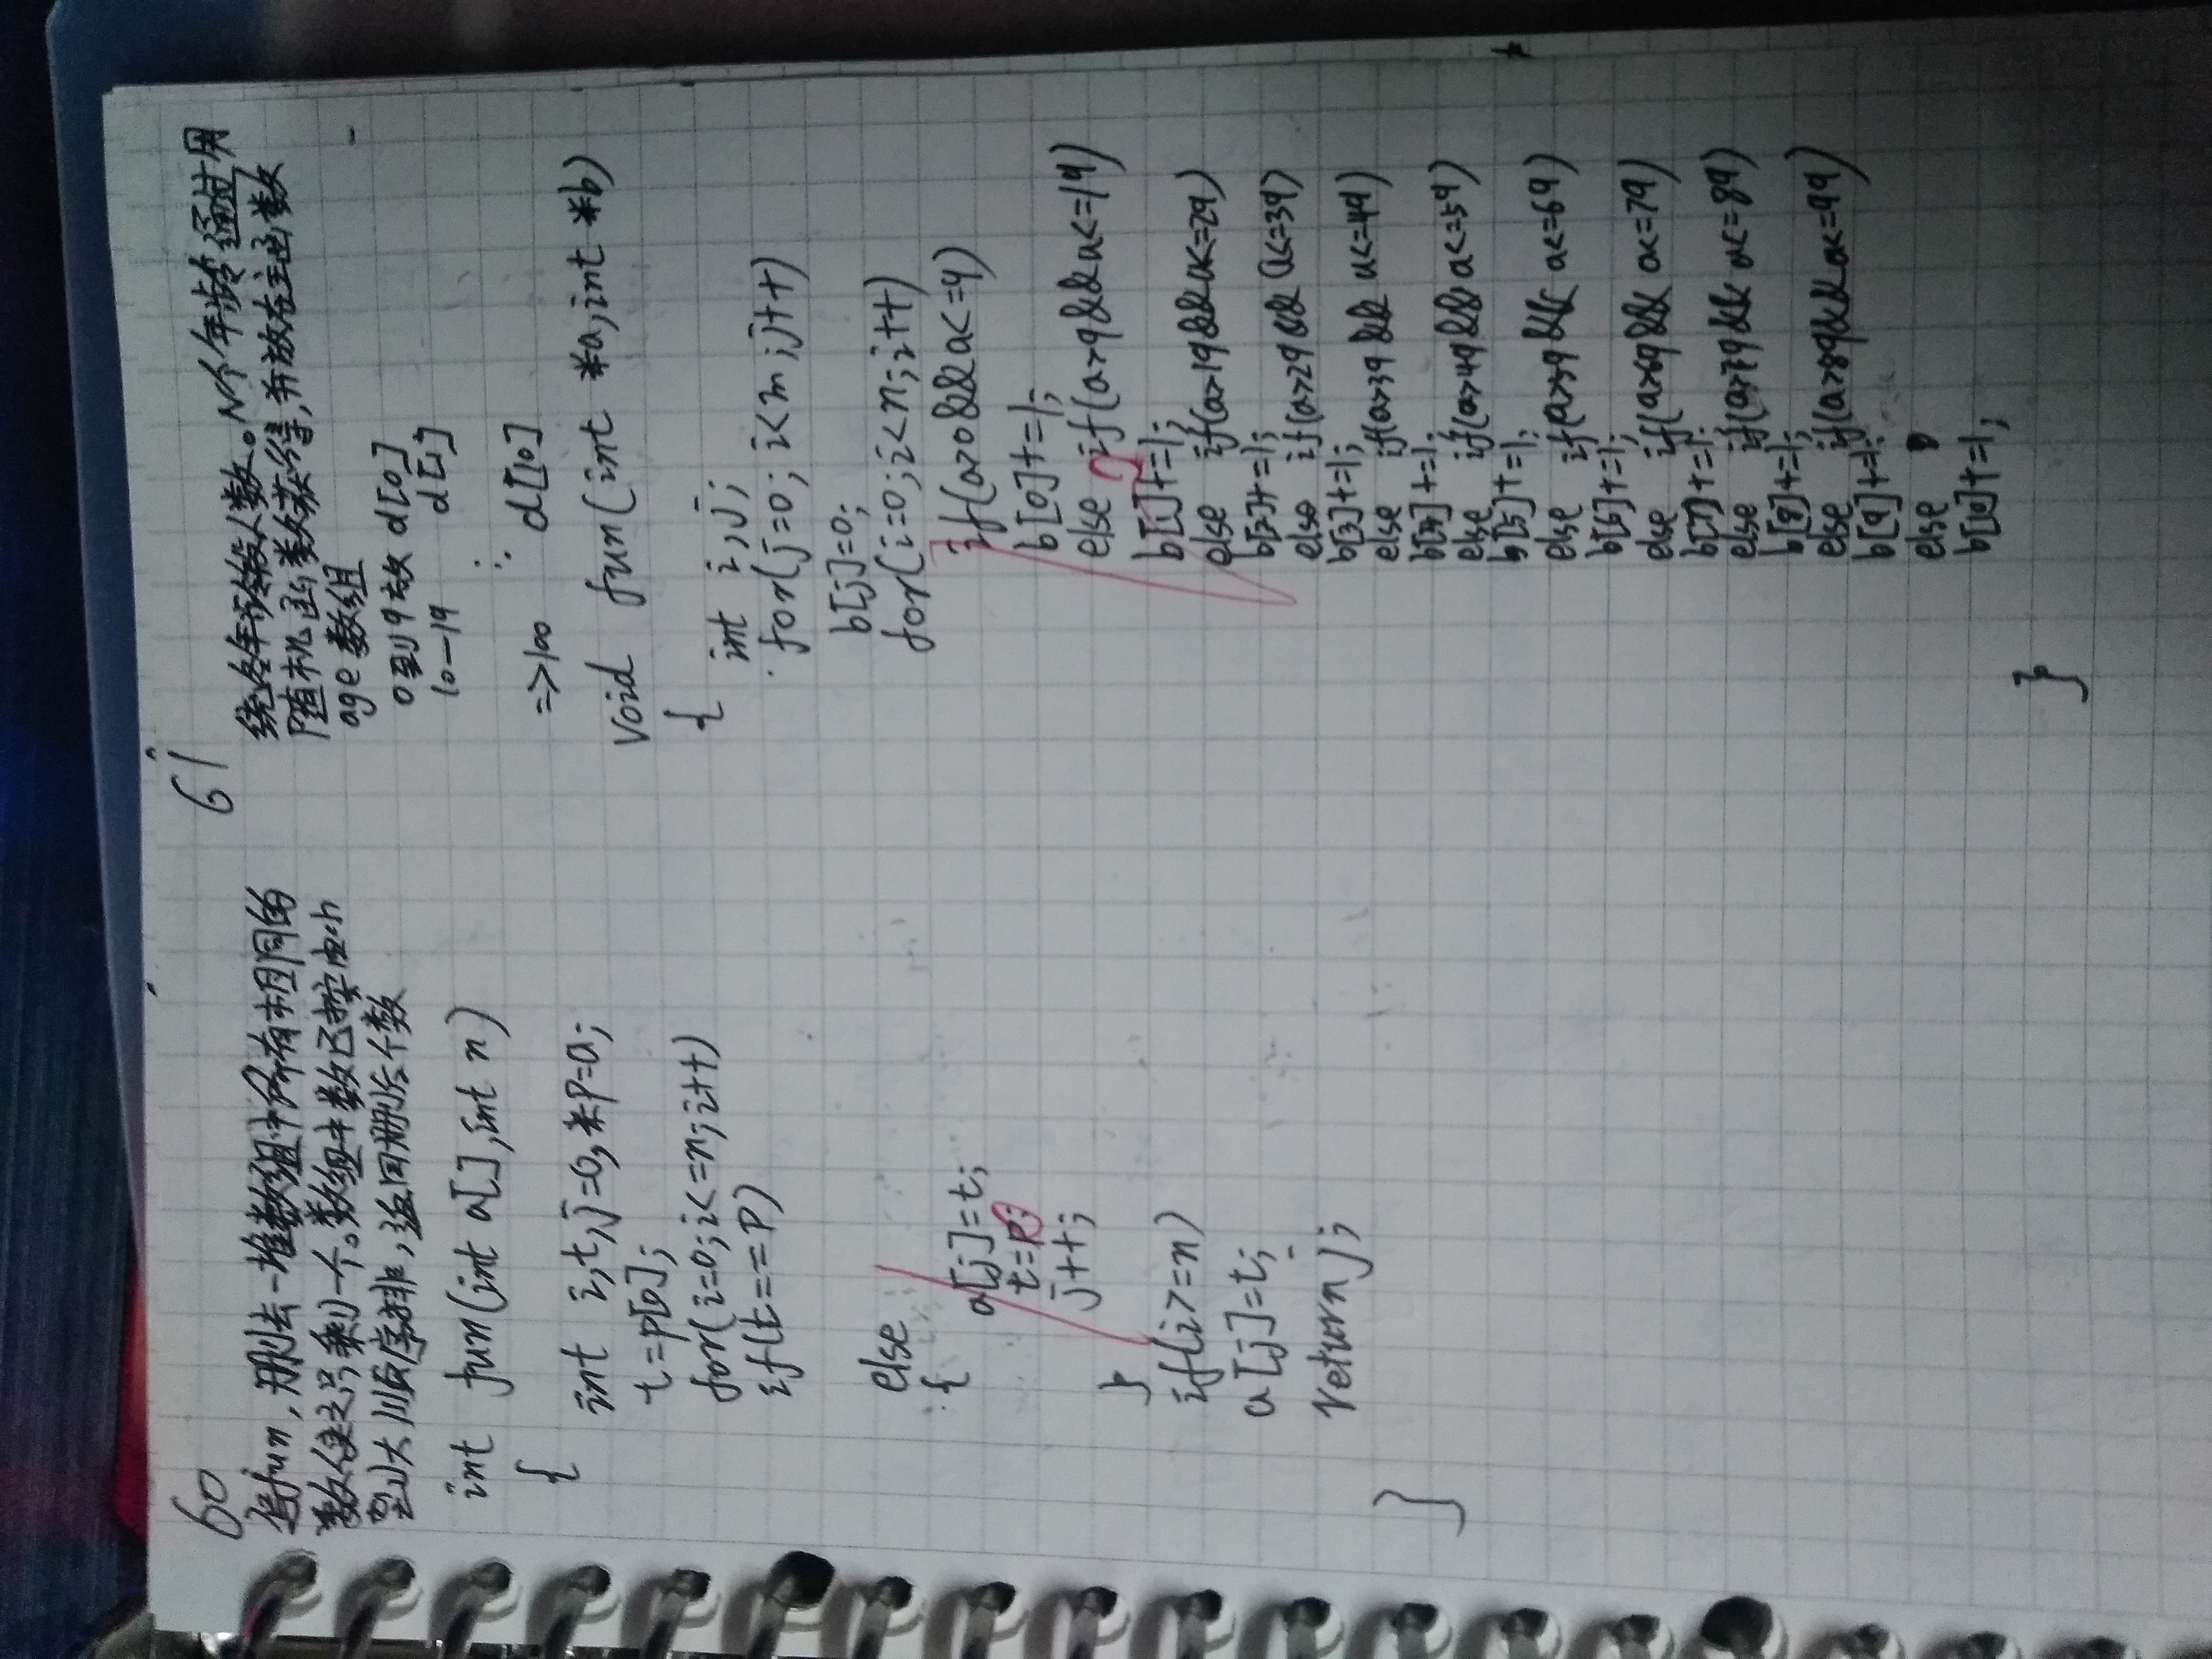 60
编fun,删去一堆数组中所有相同的
数使之只剩一个。数组中数已按由小
到大顺序排,返回删后个数
int fun(int a[],int n)
{
int i,t,j=0,*P=a;
t=P[0];
for(i=0;i<=n;i++)
if(t==P)
else
{
a[j]=t;
t=P;
j++;
}
if(i>=n)
a[j]=t;
return j;
}
61
统各年龄段人数。N个年龄通过用
随机函数获得,并放在主函数
age数组
0到9放d[0]
10—19 d[1]
=>100 d[10]
void fun(int *a,int *b)
{
int i,j;
for(j=0;i<m;j++)
b[j]=0;
for(i=0;i<n;i++)
if(a>0&&a<=9)
b[0]+=1;
else if(a>9&&a<=19)
b[1]+=1;
else if(a>19&&a<=29)
b[2]+=1;
else if(a>29&&a<=39)
b[3]+=1;
else if(a>39&&a<=49)
b[4]+=1;
else if(a>49&&a<=59)
b[5]+=1;
else if(a>59&&a<=69)
b[6]+=1;
else if(a>69&&a<=79)
b[7]+=1;
else if(a>79&&a<=89)
b[8]+=1;
else if(a>89&&a<=99)
b[9]+=1;
else
b[10]+=1;
}